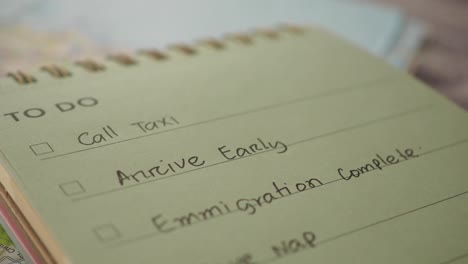 TO DO
Call Taxi
Anrive Early
Emmigration Complete.
Nap